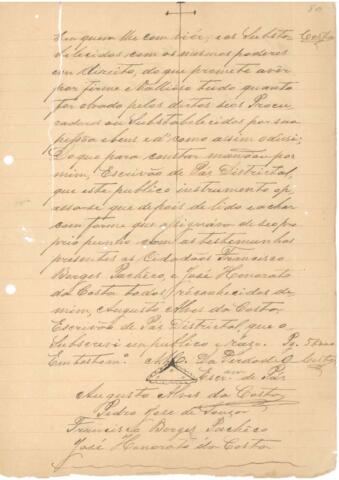 80
em quem lhe convier, e os Substa Costa
belecidos com os mesmos poderes
em direito, do que promete aver
por firme e Valliozo tudo quanto
for obrado pelos dictos seos Procu
radores ou Substabelecidos por sua
pessôa e bens e como assim o disse;
Do que para constar mandou por
mim, Escrivão de Paz Districtal,
que este publico instrumento
passo-se que depois de lido e achar
conforme que assignarão de seo pro
prio punho com as testemunhas
presentes os Cidadãos Francisco
Borges Pacheco, e José Honorato
da Costa todos reconhecidos de
mim, Augusto Alves da Costa,
Escrivão de Paz Districtal, que o
Subscrevi em publico e razo. Pg.
Em testem.º da Verdade O Costa
Escr.am de Paz
Augusto Alves da Costa
Pedro José de Souza
Francisco Borges Pacheco
José Honorato da Costa